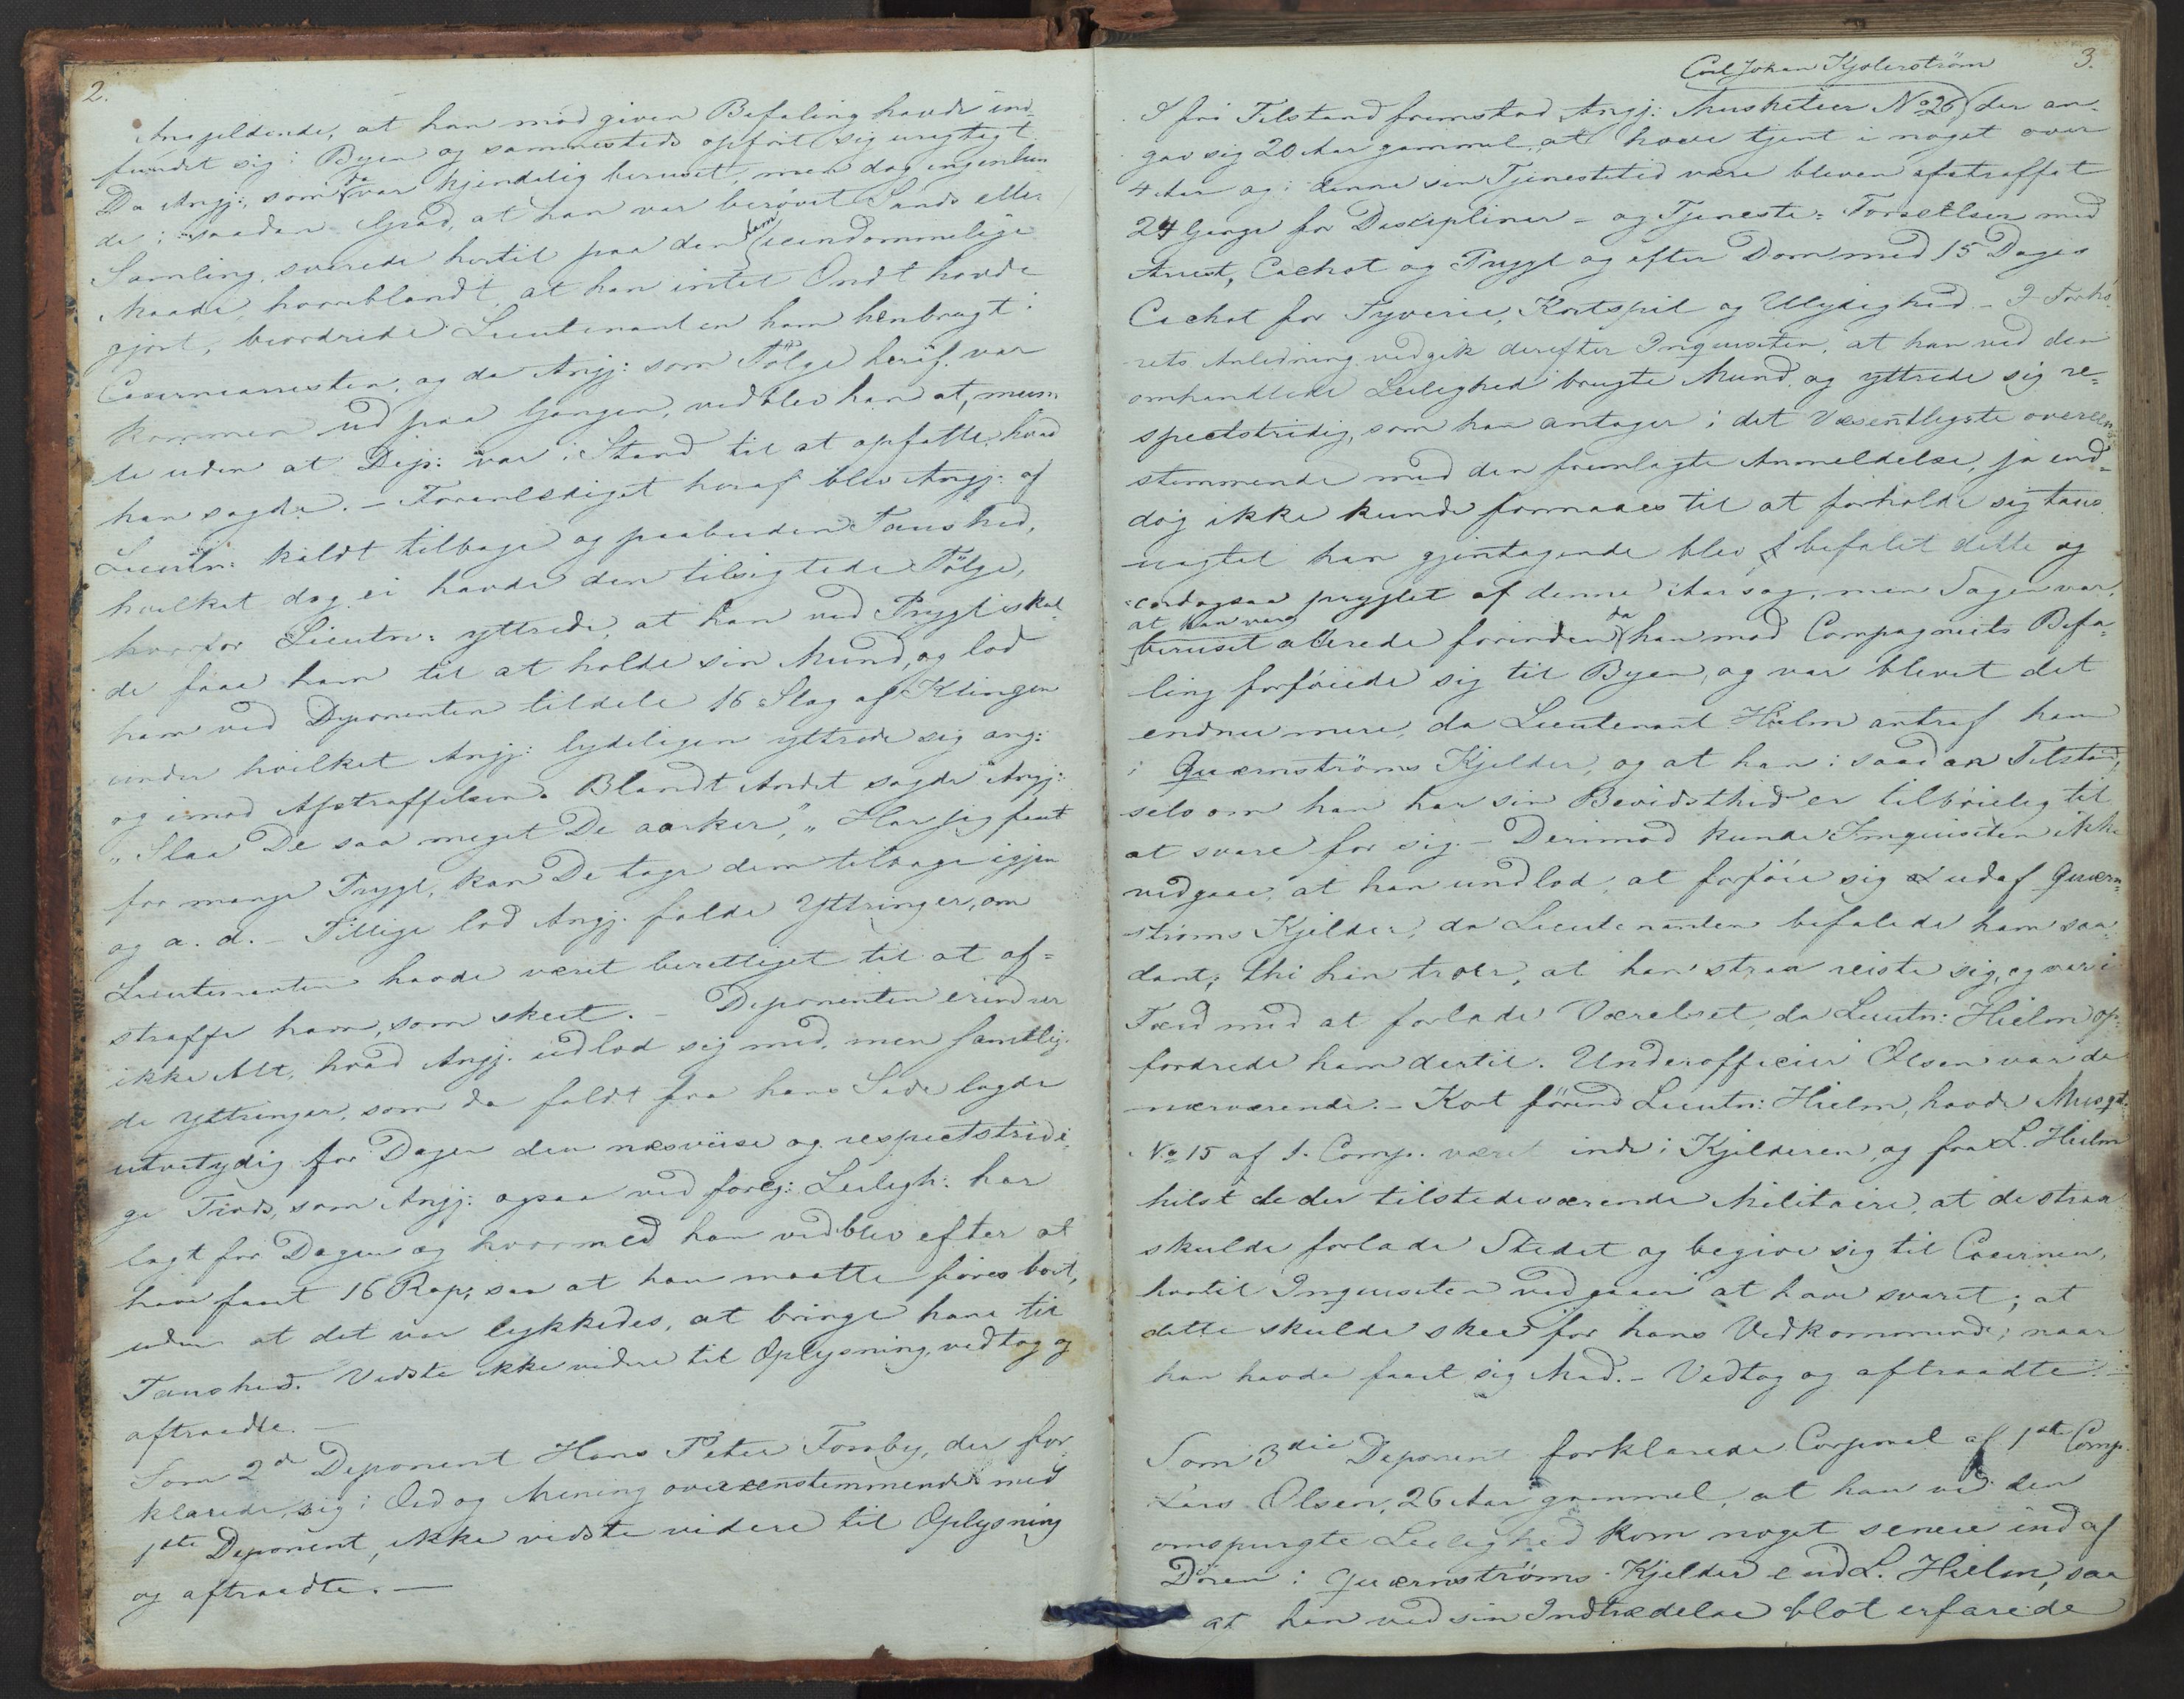 2.
Angjeldende, at han mod given Befaling havde ind-
fundet sig i Byen og sammesteds opført sig uregtigt
Da Angj:, som da var kjendelig beruset, men dog ingenlun
de i saadan Grad, at han var berøvet Sands eller
Samling, svarede hertil paa den ham eiendommelige
Maade, hvoriblandt, at han intet Ondt havde
gjort, beordrede Lieutenanten ham henbragt i
Casernearresten, og da Angj: som Følge heraf var
kommen ud paa Gangen, vedblev han at, mum
le uden at Dep: var i Stand til at opfatte, hvad
han sagde. – Foranlediget heraf blev Angj: af
Lieutn: kaldt tilbage og paabuden Taushed,
hvilket dog ei havde den tilsigtede Følge,
hvorfor Lieutn: yttrede, at han ved Prygl skul
de faae ham til at holde sin Mund, og lod
ham ved Deponenten tildele 16 Slag af Klingen
under hvilket Angj: lydeligen yttrede sig ang:
og imod Afstraffelsen. Blandt Andet sagde Angj:
„Slaa De saa meget De ørker", „Har jeg faaet
for mange Prygl, kan De tage dem tilbage igjen
og a. d. – Tillige lod Angj: falde Yttringer, om
Lieutenanten havde været berettiget til at af=
straffe ham, som skeet. – Deponenten erindrer
ikke Alt, hvad Angj. udlod sig med, men samtlig-
de Yttringer, som da faldt fra hans Side lagde
utvetydig for Dagen den næsvise og respectstridi-
ge Trods, som Angj: ogsaa ved foreg: Leiligh: har
lagt for Dagen og hvormed han vedblev efter at
have faaet 16 Rap; saa at han maatte føres bort,
uden at det var lykkedes, at bringe ham til
Taushed. Vidste ikke videre til Oplysning, vedtog og
aftraadte. –
Som 2de Deponent Hans Peter Forsby, der for
klarede sig i Ord og Mening overeenstemmende med
1ste Deponent, ikke vidste videre til Oplysning
og aftraadte. –
Carl Johan Kjolerström
3.
I fri Tilstand fremstod Angj: Musketeer No 26 der an-
gav sig 20 Aar gammel, at have tjent i noget over
4 Aar og i denne sin Tjenestetid være bleven afstraffet
24 Gange for Disciplinær- og Tjeneste-Forseelser med
Arrest, Cachot og Prygl og efter Dom med 15 Dages
Cachot for Tyverie, Kortspil og Ulydighed. – I Forhø-
rets Anledning vedgik derefter Inquisiten, at han ved den
omhandlede Leilighed brugte Mund og yttrede sig re-
spectstridig, som han antager i det Væsentligste overeens
stemmende med den fremlagte Anmeldelse, ja end-
dog ikke kunde formaaes til at forholde sig taus
uagtet han gjentagende blev befalet dette og
endogsaa pryglet af denne Aarsag, men Sagen var,
at han var
beruset allerede forinden da han mod Compagniets Befa-
ling forføiede sig til Byen, og var blevet det
endnu mere, da Lieutenant Hielm antraf ham
i Quærnstrøms Kjelder, og at han i saadan Tilstand,
selv om han har sin Bevidsthed er tilbøielig til
at svare for sig. – Derimod kunde Inquisiten ikke
vedgaae, at han undlod, at forføie sig ud af Quærn-
strøms Kjelder, da Lieutenanten befalede ham saa-
dant; thi han troer, at han strax reiste sig, og var i
Færd med at forlade Værelset, da Lieutn: Hielm op-
fordrede ham dertil. Underofficier Olsen var da
nærværende. – Kort førend Lieutn: Hielm, havde Musqt.
No 15 af 1. Comp. været inde i Kjelderen, og fra L. Hielm
hilst de der tilstedeværende Militaire, at de strax
skulde forlade Stedet og begive sig til Casernen,
hvortil Inquisiten vedgaaer at have svaret; at
dette skulde skee for hans Vedkommende, naar
han havde faaet sig Mad. – Vedtog og aftraadte. –
Som 3die Deponent forklarede Corporal af 1ste Comp.
Lars Olsen, 26 Aar gammel, at han ved den
omspurgte Leilighed kom noget senere ind af
Døren i Quærnstrøms Kjelder end L. Hielm, saa
at han ved sin Indtrædelse blot erfarede